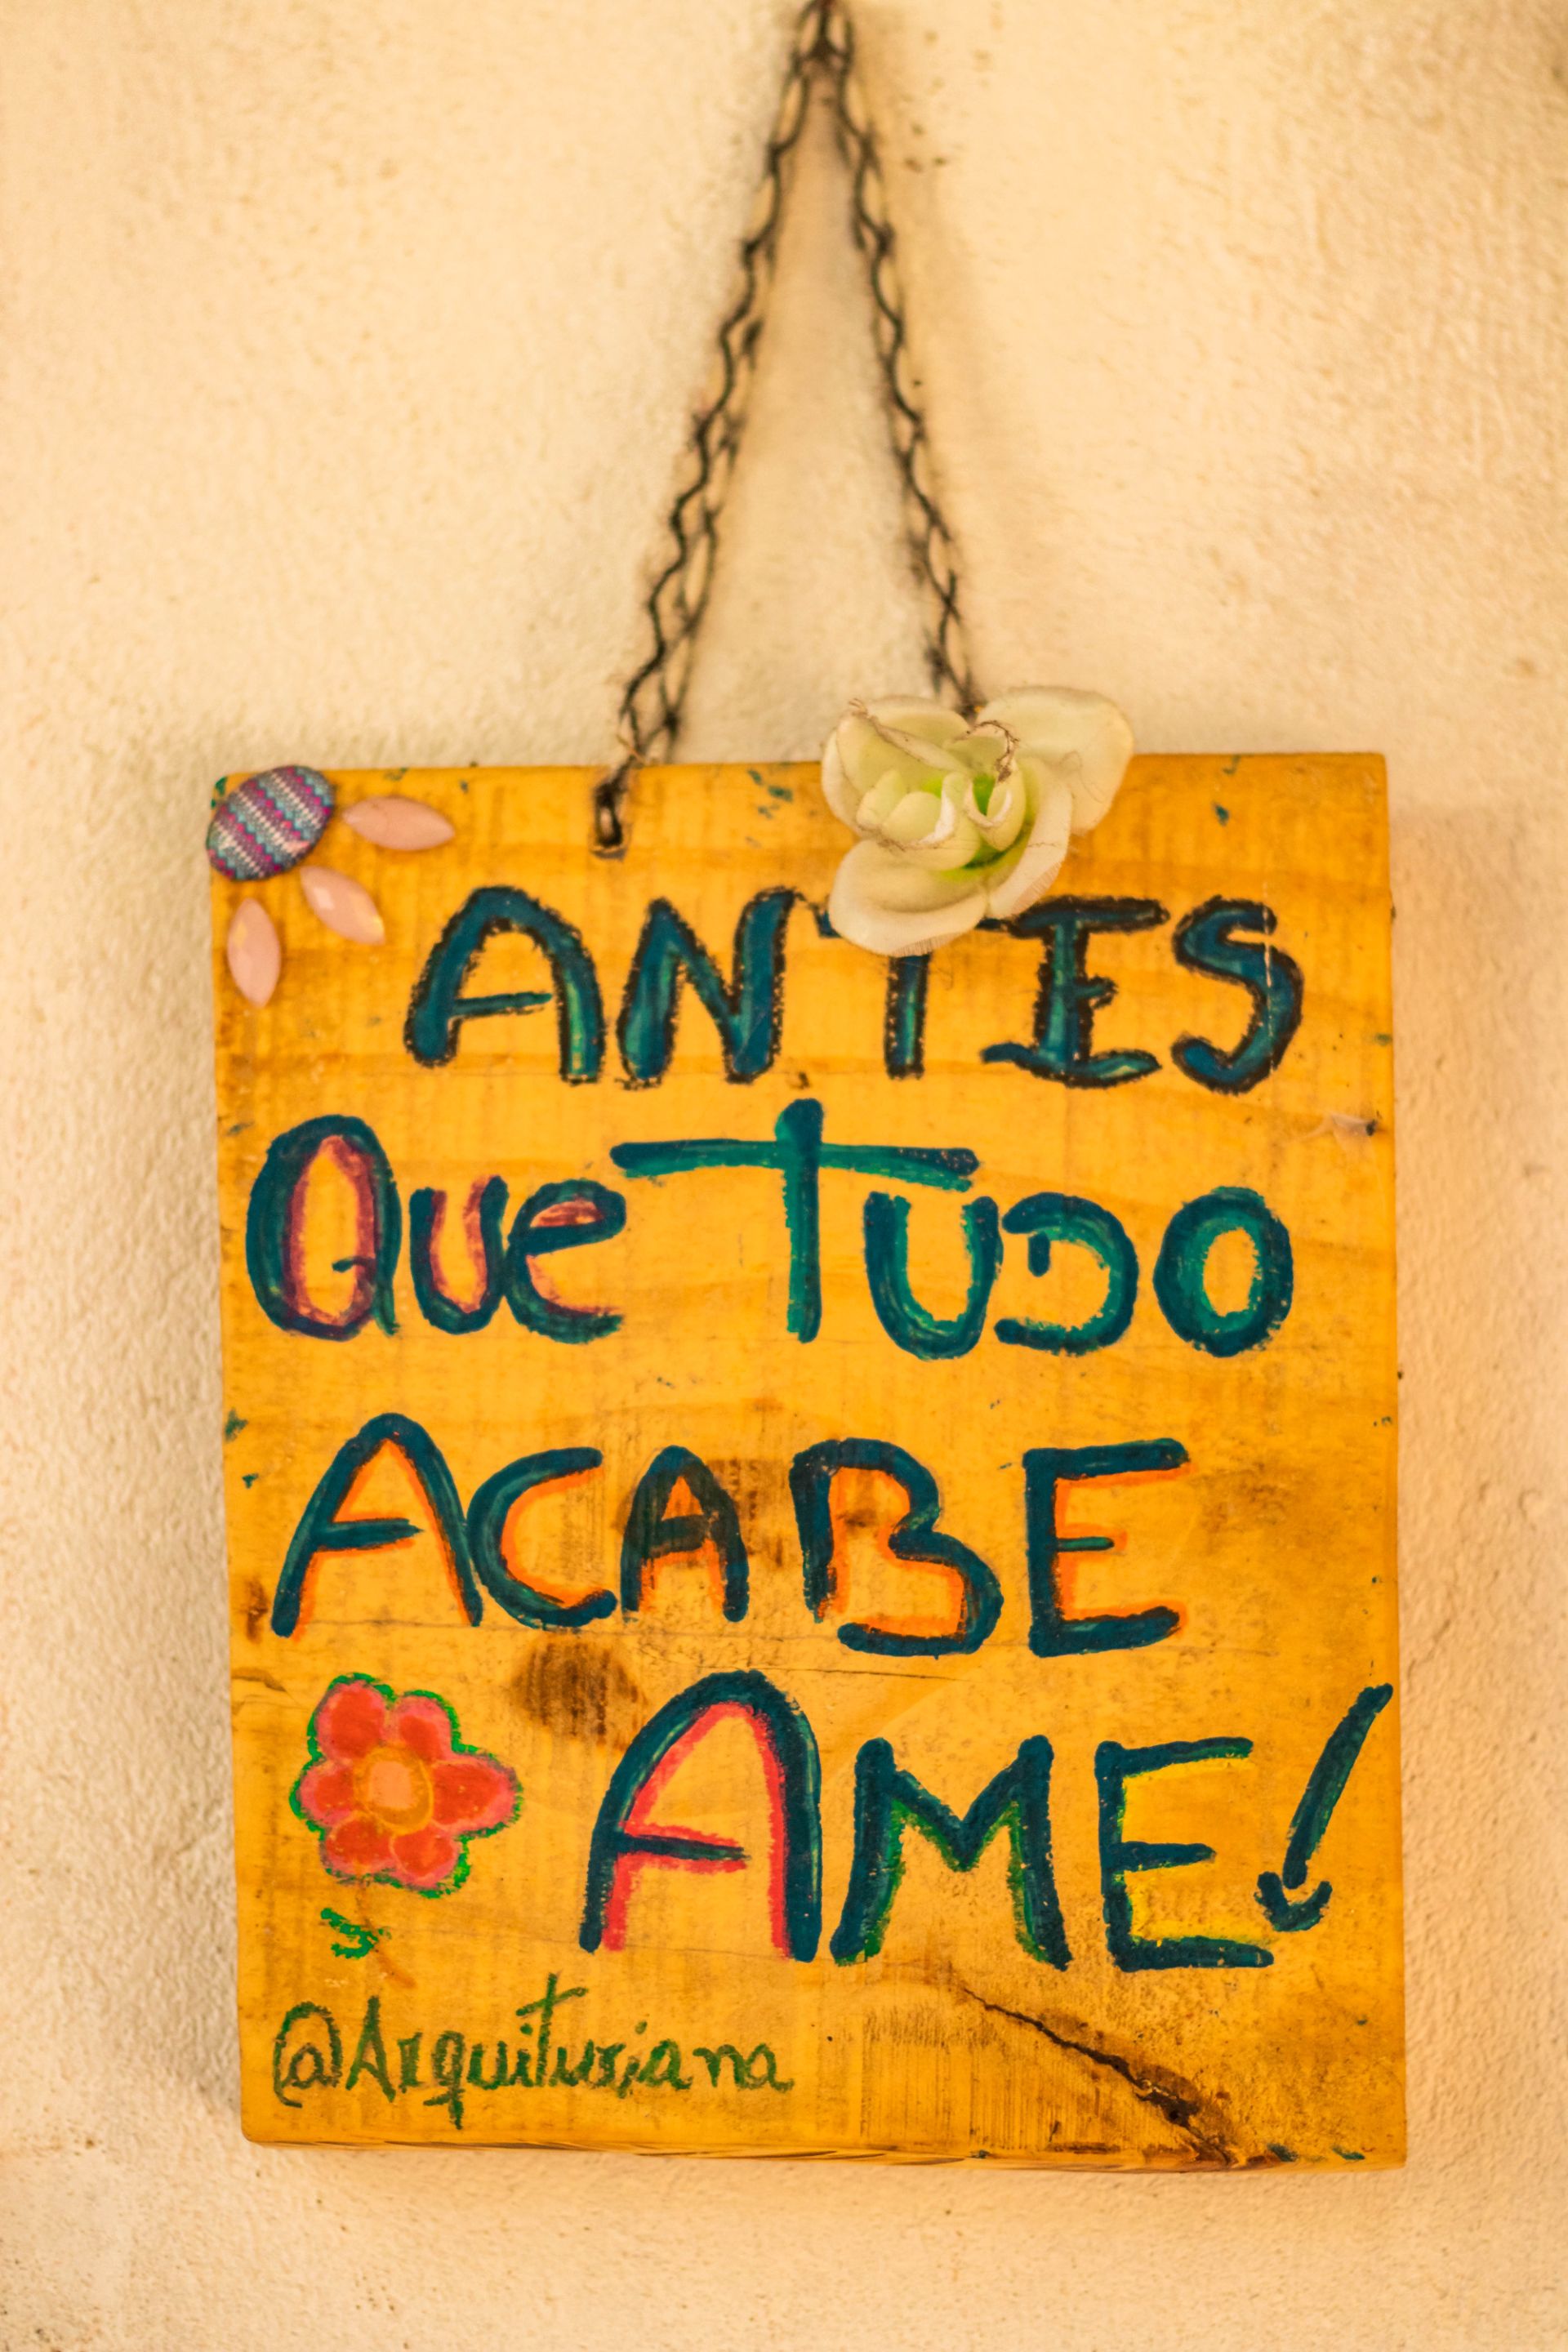 ANTES
Que TUDO
ACABE
AME!
@Arquituriana